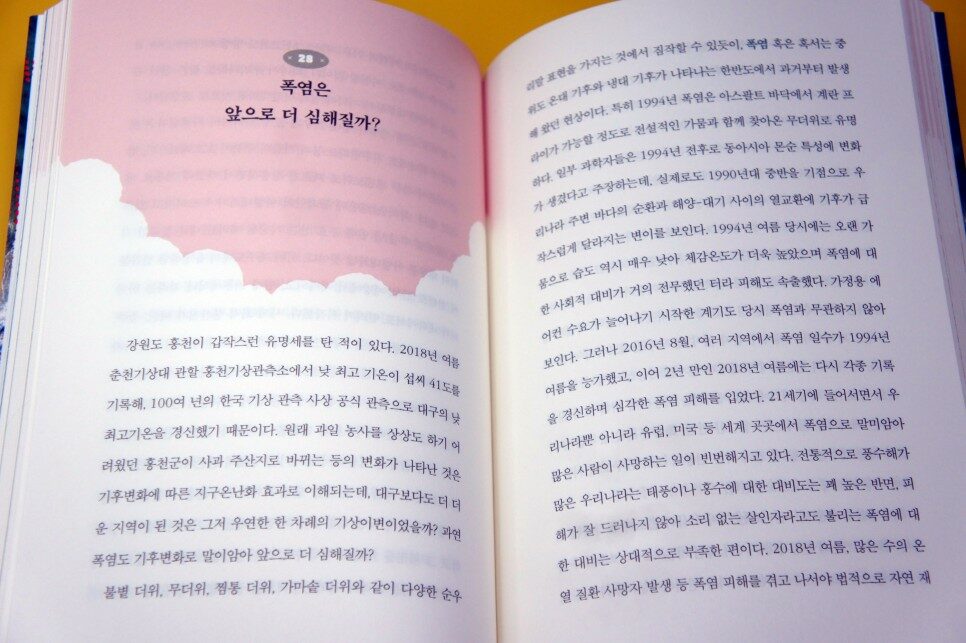 28
폭염은
앞으로 더 심해질까?
강원도 홍천이 갑작스런 유명세를 탄 적이 있다. 2018년 여름
춘천기상대 관할 홍천기상관측소에서 낮 최고 기온이 섭씨 41도를
기록해, 100여 년의 한국 기상 관측 사상 공식 관측으로 대구의 낮
최고기온을 경신했기 때문이다. 원래 과일 농사를 상상도 하기 어
려웠던 홍천군이 사과 주산지로 바뀌는 등의 변화가 나타난 것은
기후변화에 따른 지구온난화 효과로 이해되는데, 대구보다도 더 더
운 지역이 된 것은 그저 우연한 한 차례의 기상이변이었을까? 과연
폭염도 기후변화로 말미암아 앞으로 더 심해질까?
불볕 더위, 무더위, 찜통 더위, 가마솥 더위와 같이 다양한 순우
리말 표현을 가지는 것에서 짐작할 수 있듯이, 폭염 혹은 혹서는 중
위도 온대 기후와 냉대 기후가 나타나는 한반도에서 과거부터 발생
해 왔던 현상이다. 특히 1994년 폭염은 아스팔트 바닥에서 계란 프
라이가 가능할 정도로 전설적인 가뭄과 함께 찾아온 무더위로 유명
하다. 일부 과학자들은 1994년 전후로 동아시아 몬순 특성에 변화
가 생겼다고 주장하는데, 실제로도 1990년대 중반을 기점으로 우
리나라 주변 바다의 순환과 해양-대기 사이의 열교환에 기후가 급
작스럽게 달라지는 변이를 보인다. 1994년 여름 당시에는 오랜 가
뭄으로 습도 역시 매우 낮아 체감온도가 더욱 높았으며 폭염에 대
한 사회적 대비가 거의 전무했던 터라 피해도 속출했다. 가정용 에
어컨 수요가 늘어나기 시작한 계기도 당시 폭염과 무관하지 않아
보인다. 그러나 2016년 8월, 여러 지역에서 폭염 일수가 1994년
여름을 능가했고, 이어 2년 만인 2018년 여름에는 다시 각종 기록
을 경신하며 심각한 폭염 피해를 입었다. 21세기에 들어서면서 우
리나라뿐 아니라 유럽, 미국 등 세계 곳곳에서 폭염으로 말미암아
많은 사람이 사망하는 일이 빈번해지고 있다. 전통적으로 풍수해가
많은 우리나라는 태풍이나 홍수에 대한 대비도는 꽤 높은 반면, 피
해가 잘 드러나지 않아 소리 없는 살인자라고도 불리는 폭염에 대
한 대비는 상대적으로 부족한 편이다. 2018년 여름, 많은 수의 온
열 질환 사망자 발생 등 폭염 피해를 겪고 나서야 법적으로 자연 재